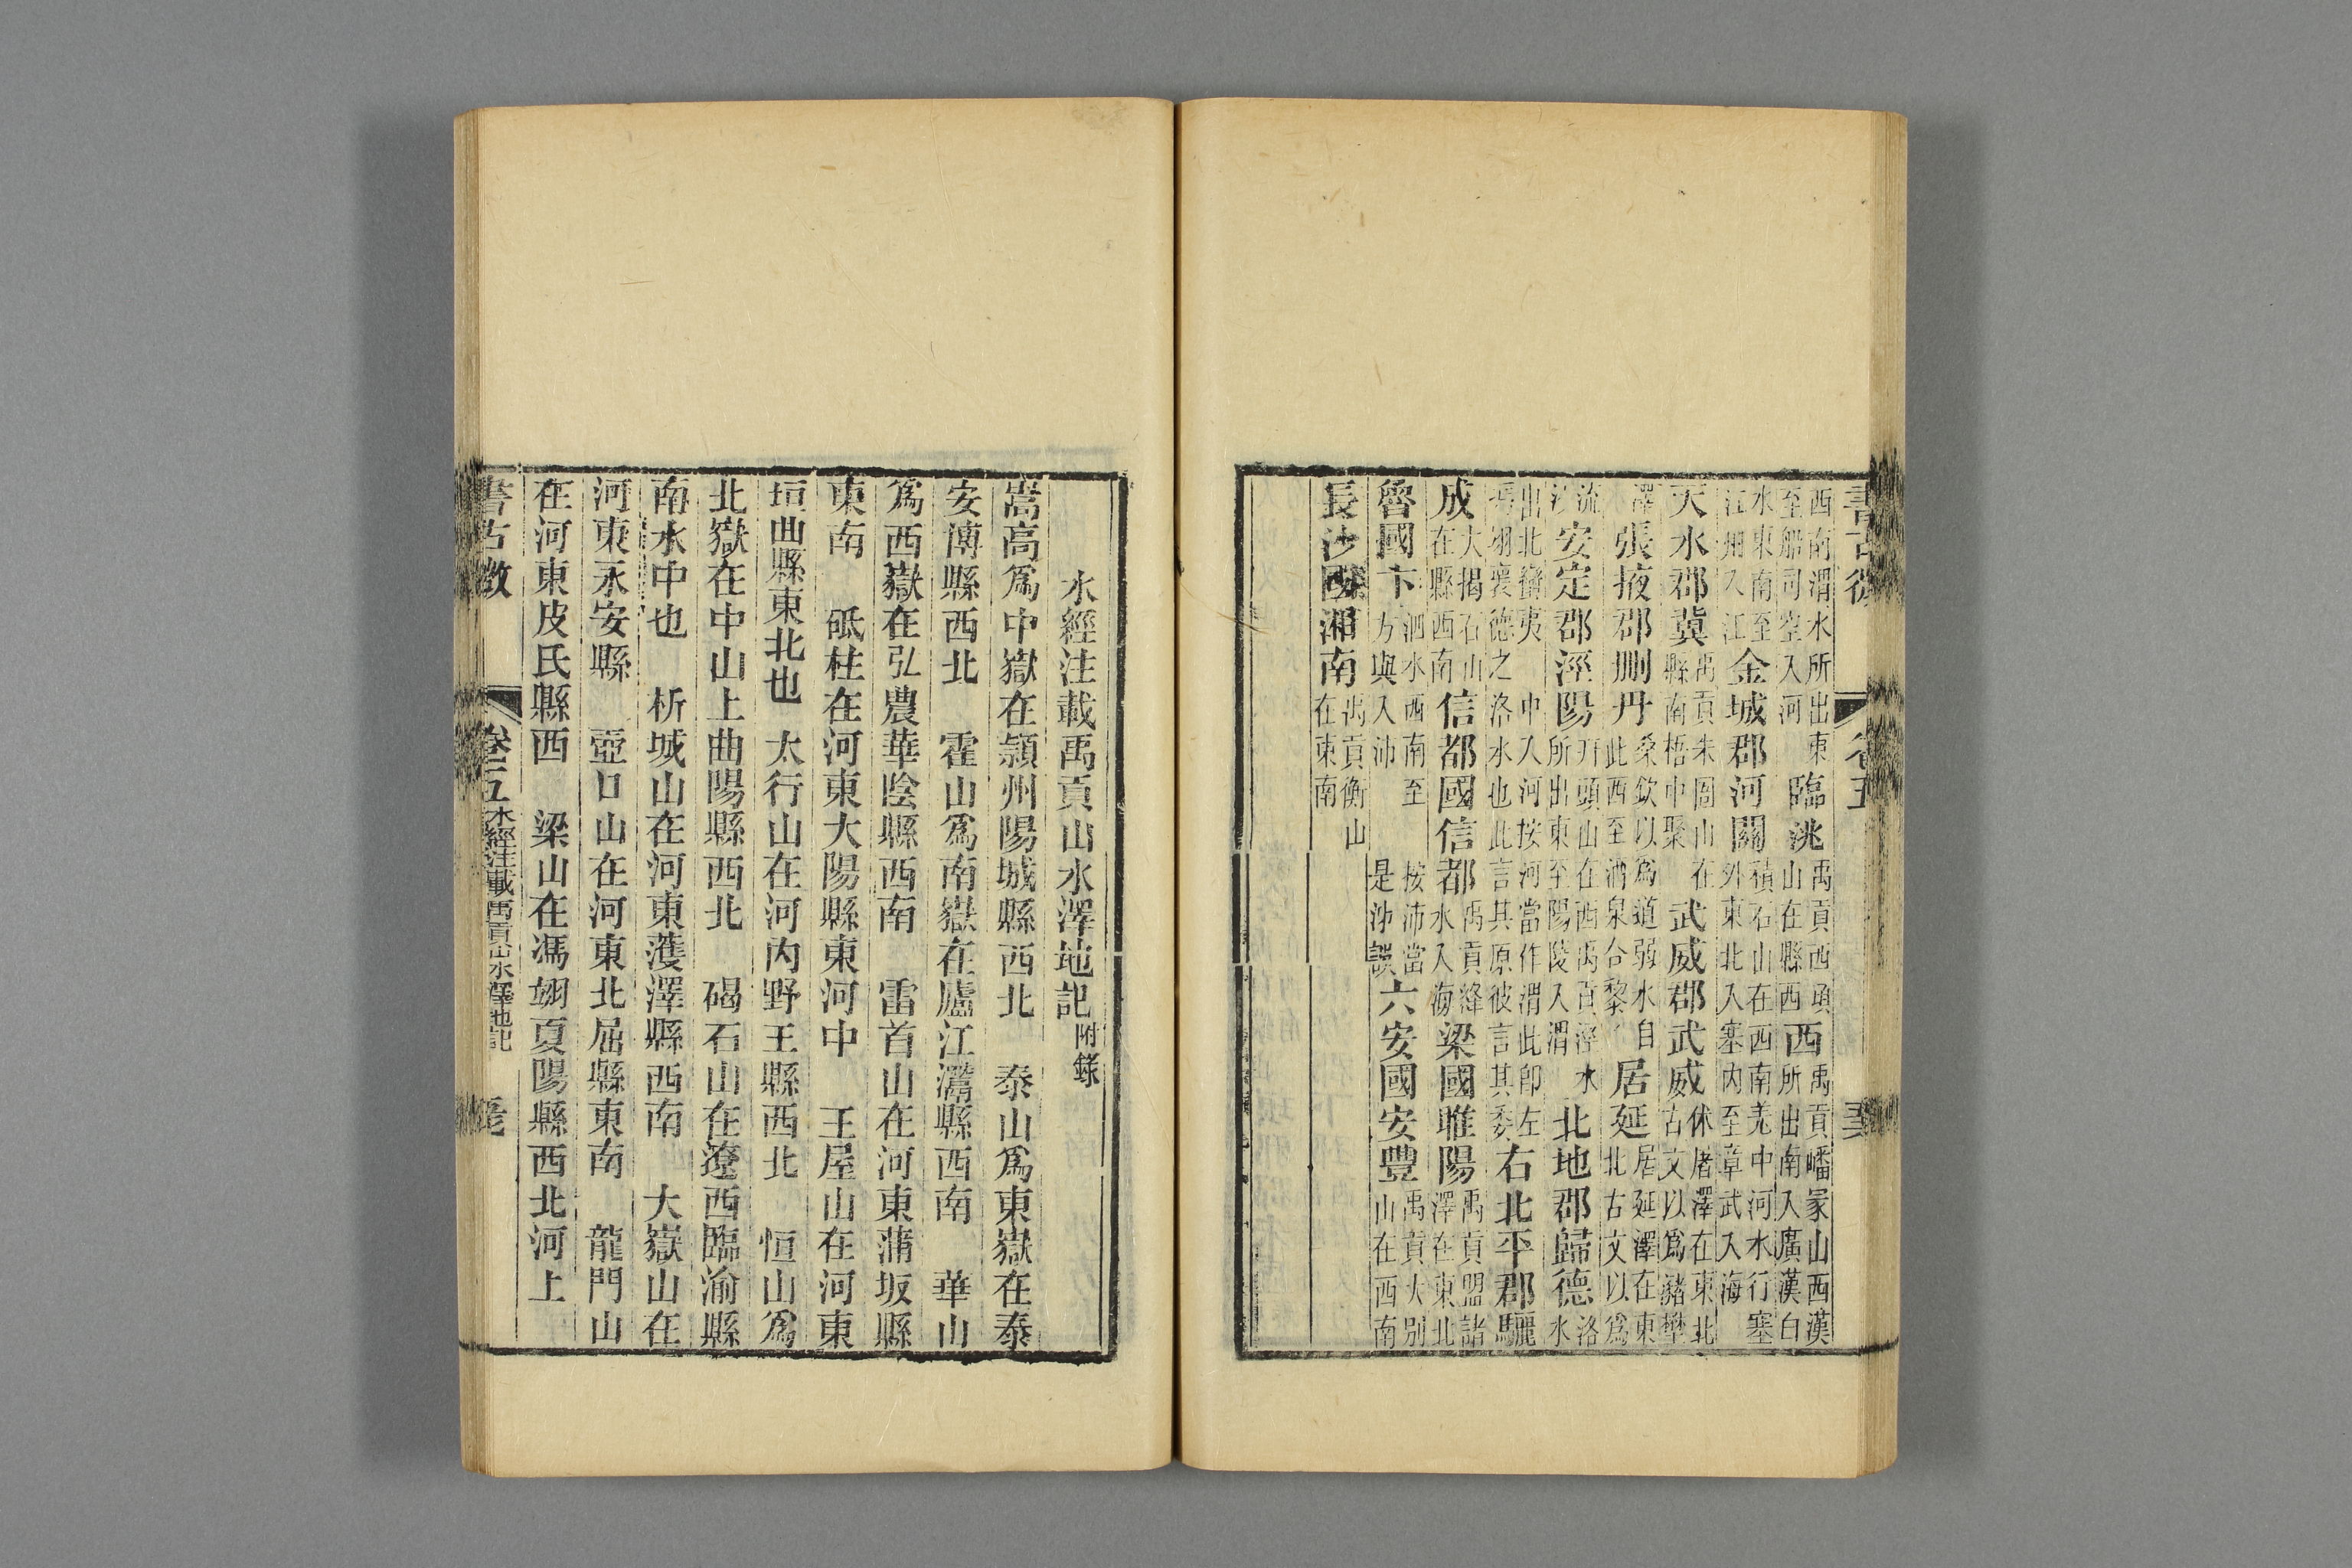 書古微　卷五
西南渭水所出東至船司空入河臨洮禹貢西頃山在縣西西禹貢嶓冢山西漢所出南入廣漢白
水東南至江州入江金城郡河關積石山在西南羌中河水行塞外東北入塞內至章武入海
天水郡冀禹貢朱圄山在縣南梧中聚武威郡武威休屠澤在東北古文以爲豬壄
澤張掖郡刪丹桑欽以爲道弱水自此西至酒泉合黎居延居延澤在東北古文以爲
流沙安定郡涇陽幵頭山在西禹貢涇水所出東至陽陵入渭北地郡歸德洛水
出北蠻夷中入河按河當作渭此卽左馮翊襄德之洛水也此言其原彼言其委右北平郡驪
成大揭石山在縣西南信都國信都禹貢絳水入海梁國睢陽禹貢盟諸澤在東北
魯國卞泗水西南至方與入沛按沛當是泲誤六安國安豐禹貢大別山在西南
長沙國湘南禹貢衡山在東南
水經注載禹貢山水澤地記附錄
嵩高爲中嶽在頴州陽城縣西北　泰山爲東嶽在泰
安博縣西北　霍山爲南嶽在廬江灊縣西南　華山
爲西嶽在弘農華陰縣西南　雷首山在河東蒲坂縣
東南　砥柱在河東大陽縣東河中　王屋山在河東
垣曲縣東北也　太行山在河內野王縣西北　恒山爲
北嶽在中山上曲陽縣西北　碣石山在遼西臨渝縣
南水中也　析城山在河東濩澤縣西南　大嶽山在
河東永安縣　壺口山在河東北屈縣東南　龍門山
在河東皮氏縣西　梁山在馮翊夏陽縣西北河上
書古微　卷五　水經注載禹貢山水澤地記